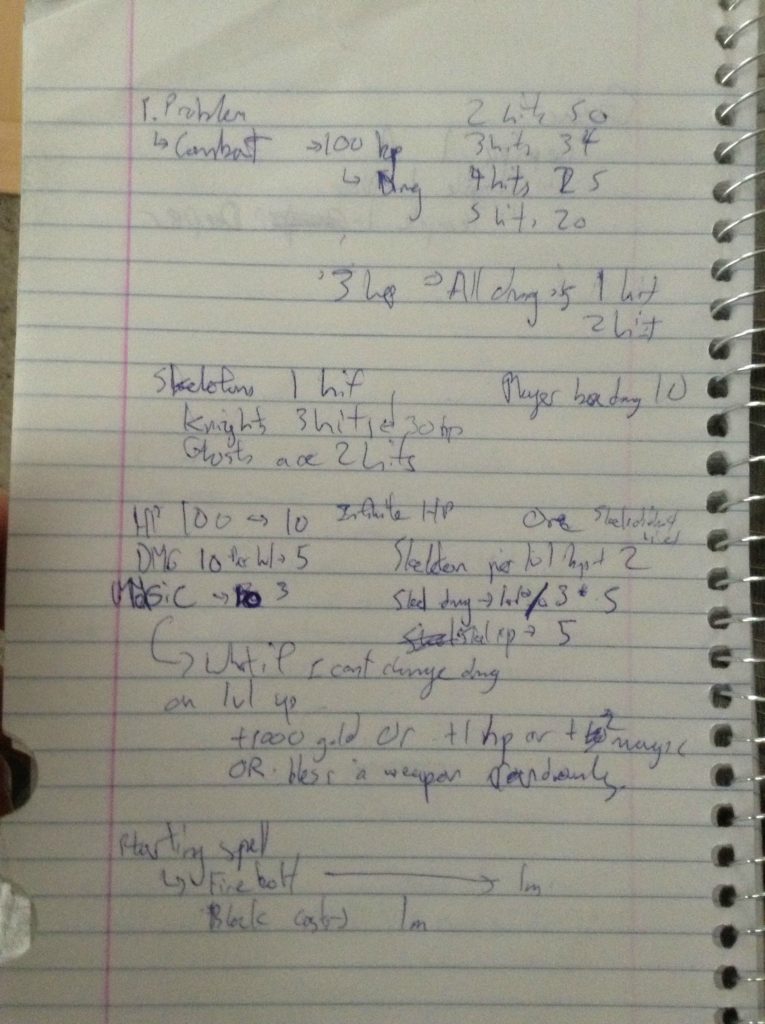 1. Problem 2 hits 50
↳ Combat → 100 hp 3 hits 34
↳ Dmg 4 hits 25
5 hits 20
3 hp → All dmg is 1 hit
2 hit
Skeletons 1 hit Player dmg 10
Knights 3 hits 30 hp
Ghosts are 2 hits
HP 100 ↔ 10 Infinite HP
DMG 10 Per lvl → 5 Skeleton per lvl hp + 2
MAGIC → 3 Skel dmg → 3 * 5
Skel xp → 5
↳ What if I cant change dmg
on lvl up
+1000 gold or +1 hp or +2 magic
OR bless a weapon randomly
Starting spell
↳ Fire bolt → 1m
Block cost → 1m